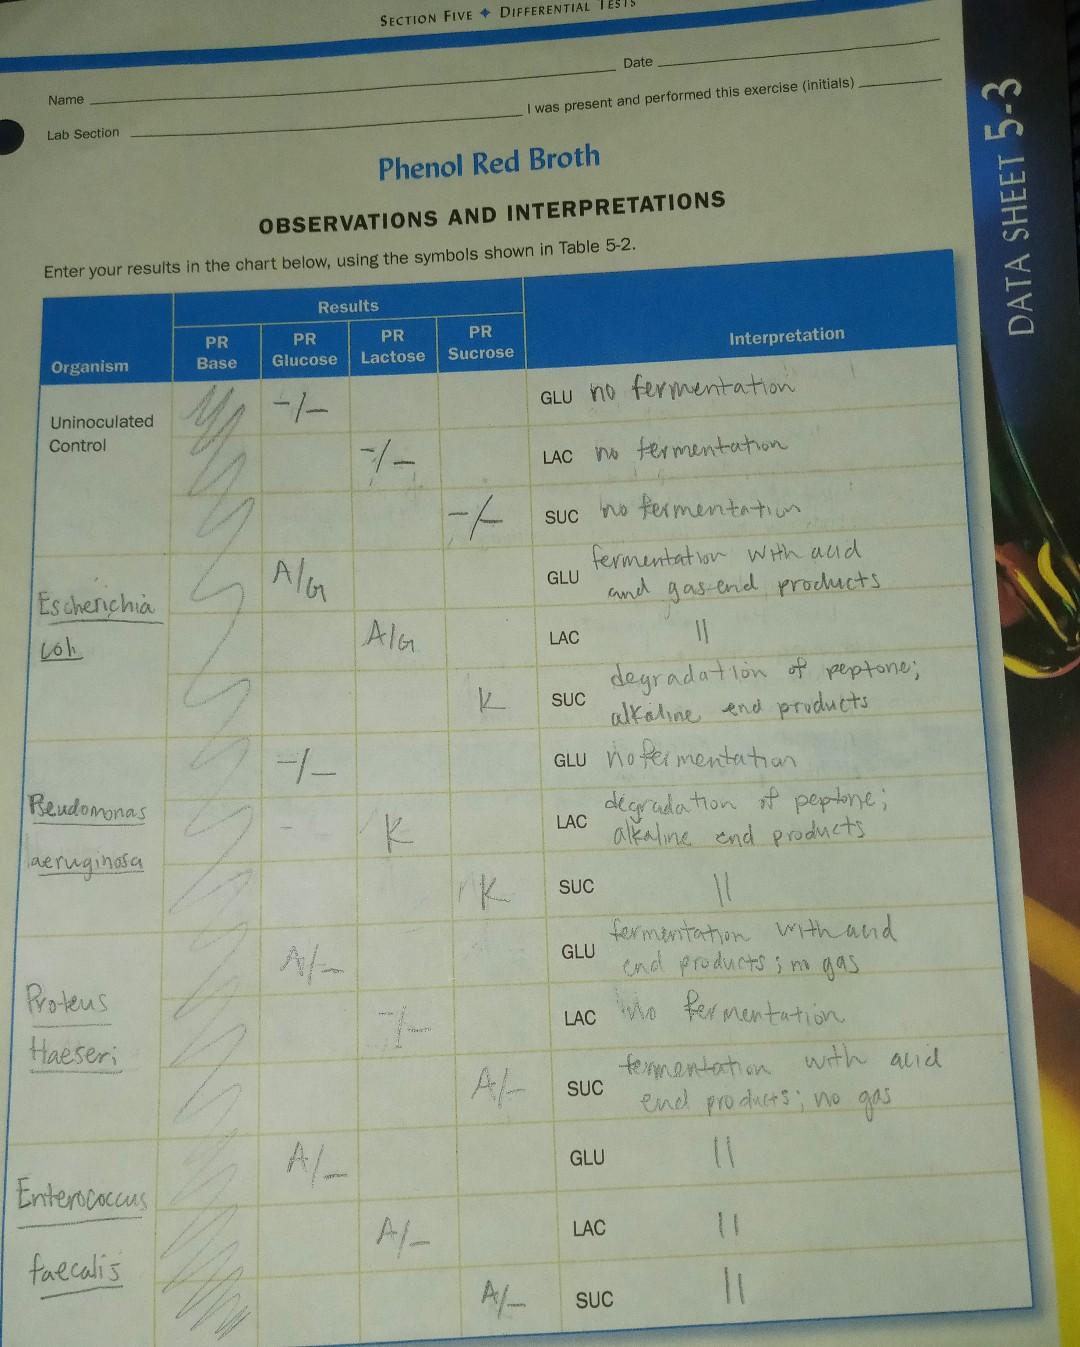 SECTION FIVE ✦ DIFFERENTIAL TESTS
Name Date
Lab Section I was present and performed this exercise (initials)
DATA SHEET 5-3
Phenol Red Broth
OBSERVATIONS AND INTERPRETATIONS
Enter your results in the chart below, using the symbols shown in Table 5-2.
Results
Organism PR Base PR Glucose PR Lactose PR Sucrose Interpretation
Uninoculated Control
-/- GLU no fermentation
-/- LAC no fermentation
-/- SUC no fermentation
Escherichia coli
A/G GLU fermentation with acid and gas end products
A/G LAC ||
K SUC degradation of peptone; alkaline end products
Pseudomonas aeruginosa
-/- GLU no fermentation
K LAC degradation of peptone; alkaline end products
K SUC ||
Proteus Haeseri
A/- GLU fermentation with acid end products; no gas
-/- LAC no fermentation
A/- SUC fermentation with acid end products; no gas
Enterococcus faecalis
A/- GLU ||
A/- LAC ||
A/- SUC ||